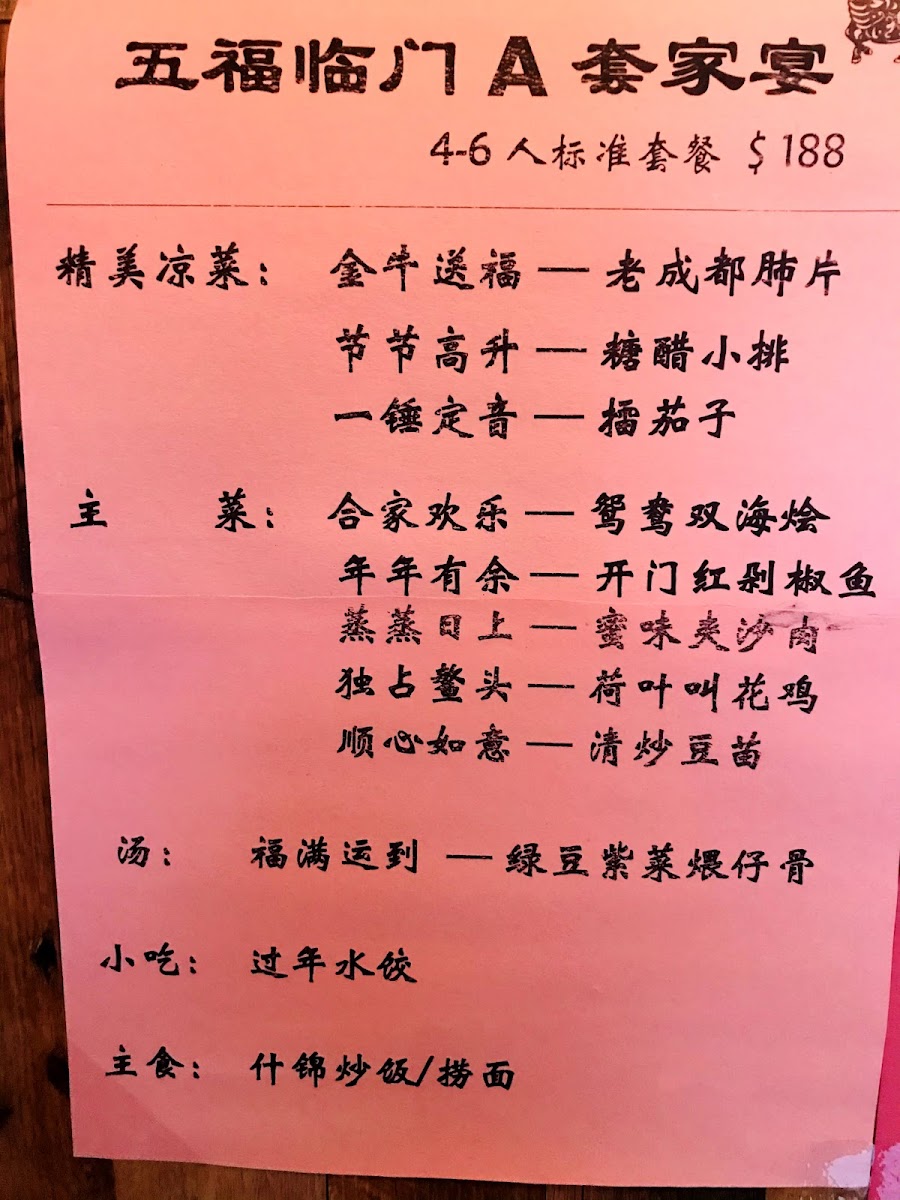 五福临门 A 套家宴
4-6 人标准套餐 $188
精美凉菜： 金牛送福 — 老成都肺片
节节高升 — 糖醋小排
一锤定音 — 擂茄子
主 菜： 合家欢乐 — 鸳鸯双海烩
年年有余 — 开门红剁椒鱼
蒸蒸日上 — 蜜味夹沙肉
独占鳌头 — 荷叶叫花鸡
顺心如意 — 清炒豆苗
汤： 福满运到 — 绿豆紫菜煨仔骨
小吃： 过年水饺
主食： 什锦炒饭/捞面